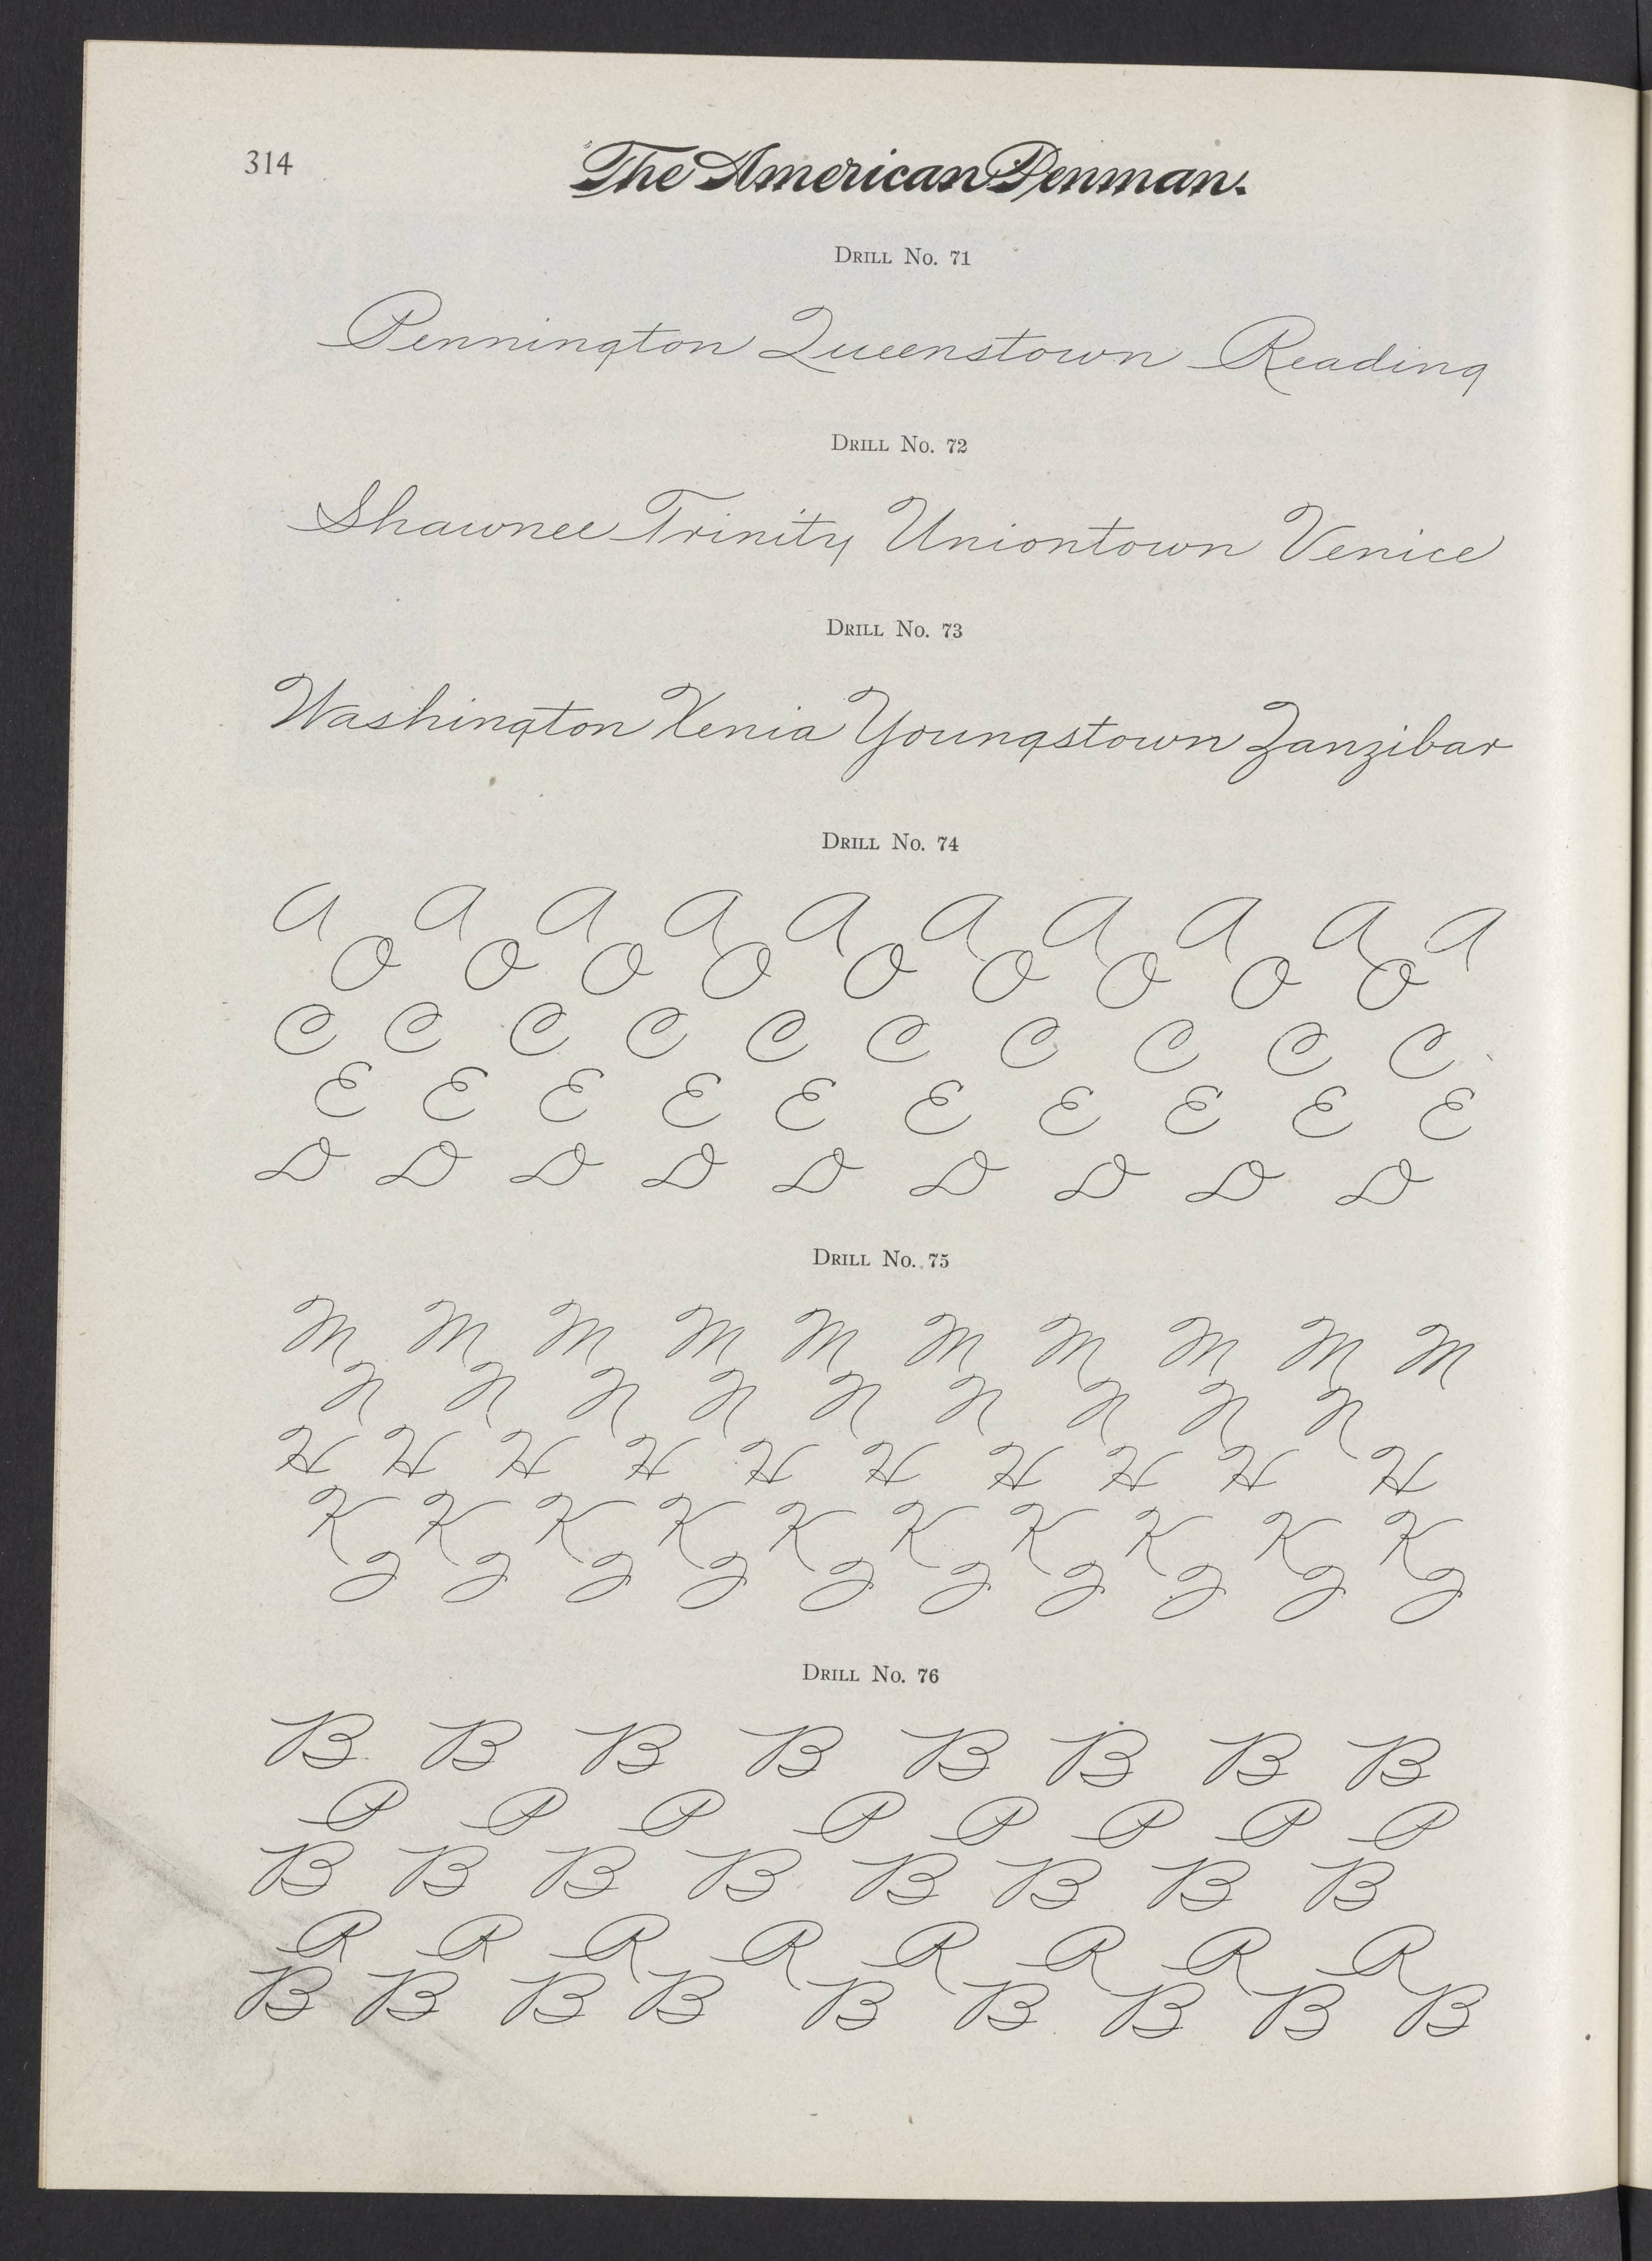 314
The American Penman.
Drill No. 71
Pennington Queenstown Reading
Drill No. 72
Shawnee Trinity Uniontown Venice
Drill No. 73
Washington Xenia Youngstown Zanzibar
Drill No. 74
A A A A A A A A A A
O O O O O O O O O
C C C C C C C C C C
E E E E E E E E E E
D D D D D D D D D
Drill No. 75
M M M M M M M M M M
N N N N N N N N N
H H H H H H H H H H
K K K K K K K K K K
Drill No. 76
B B B B B B B B
P P P P P P P P
B B B B B B B B
R R R R R R R R
B B B B B B B B B